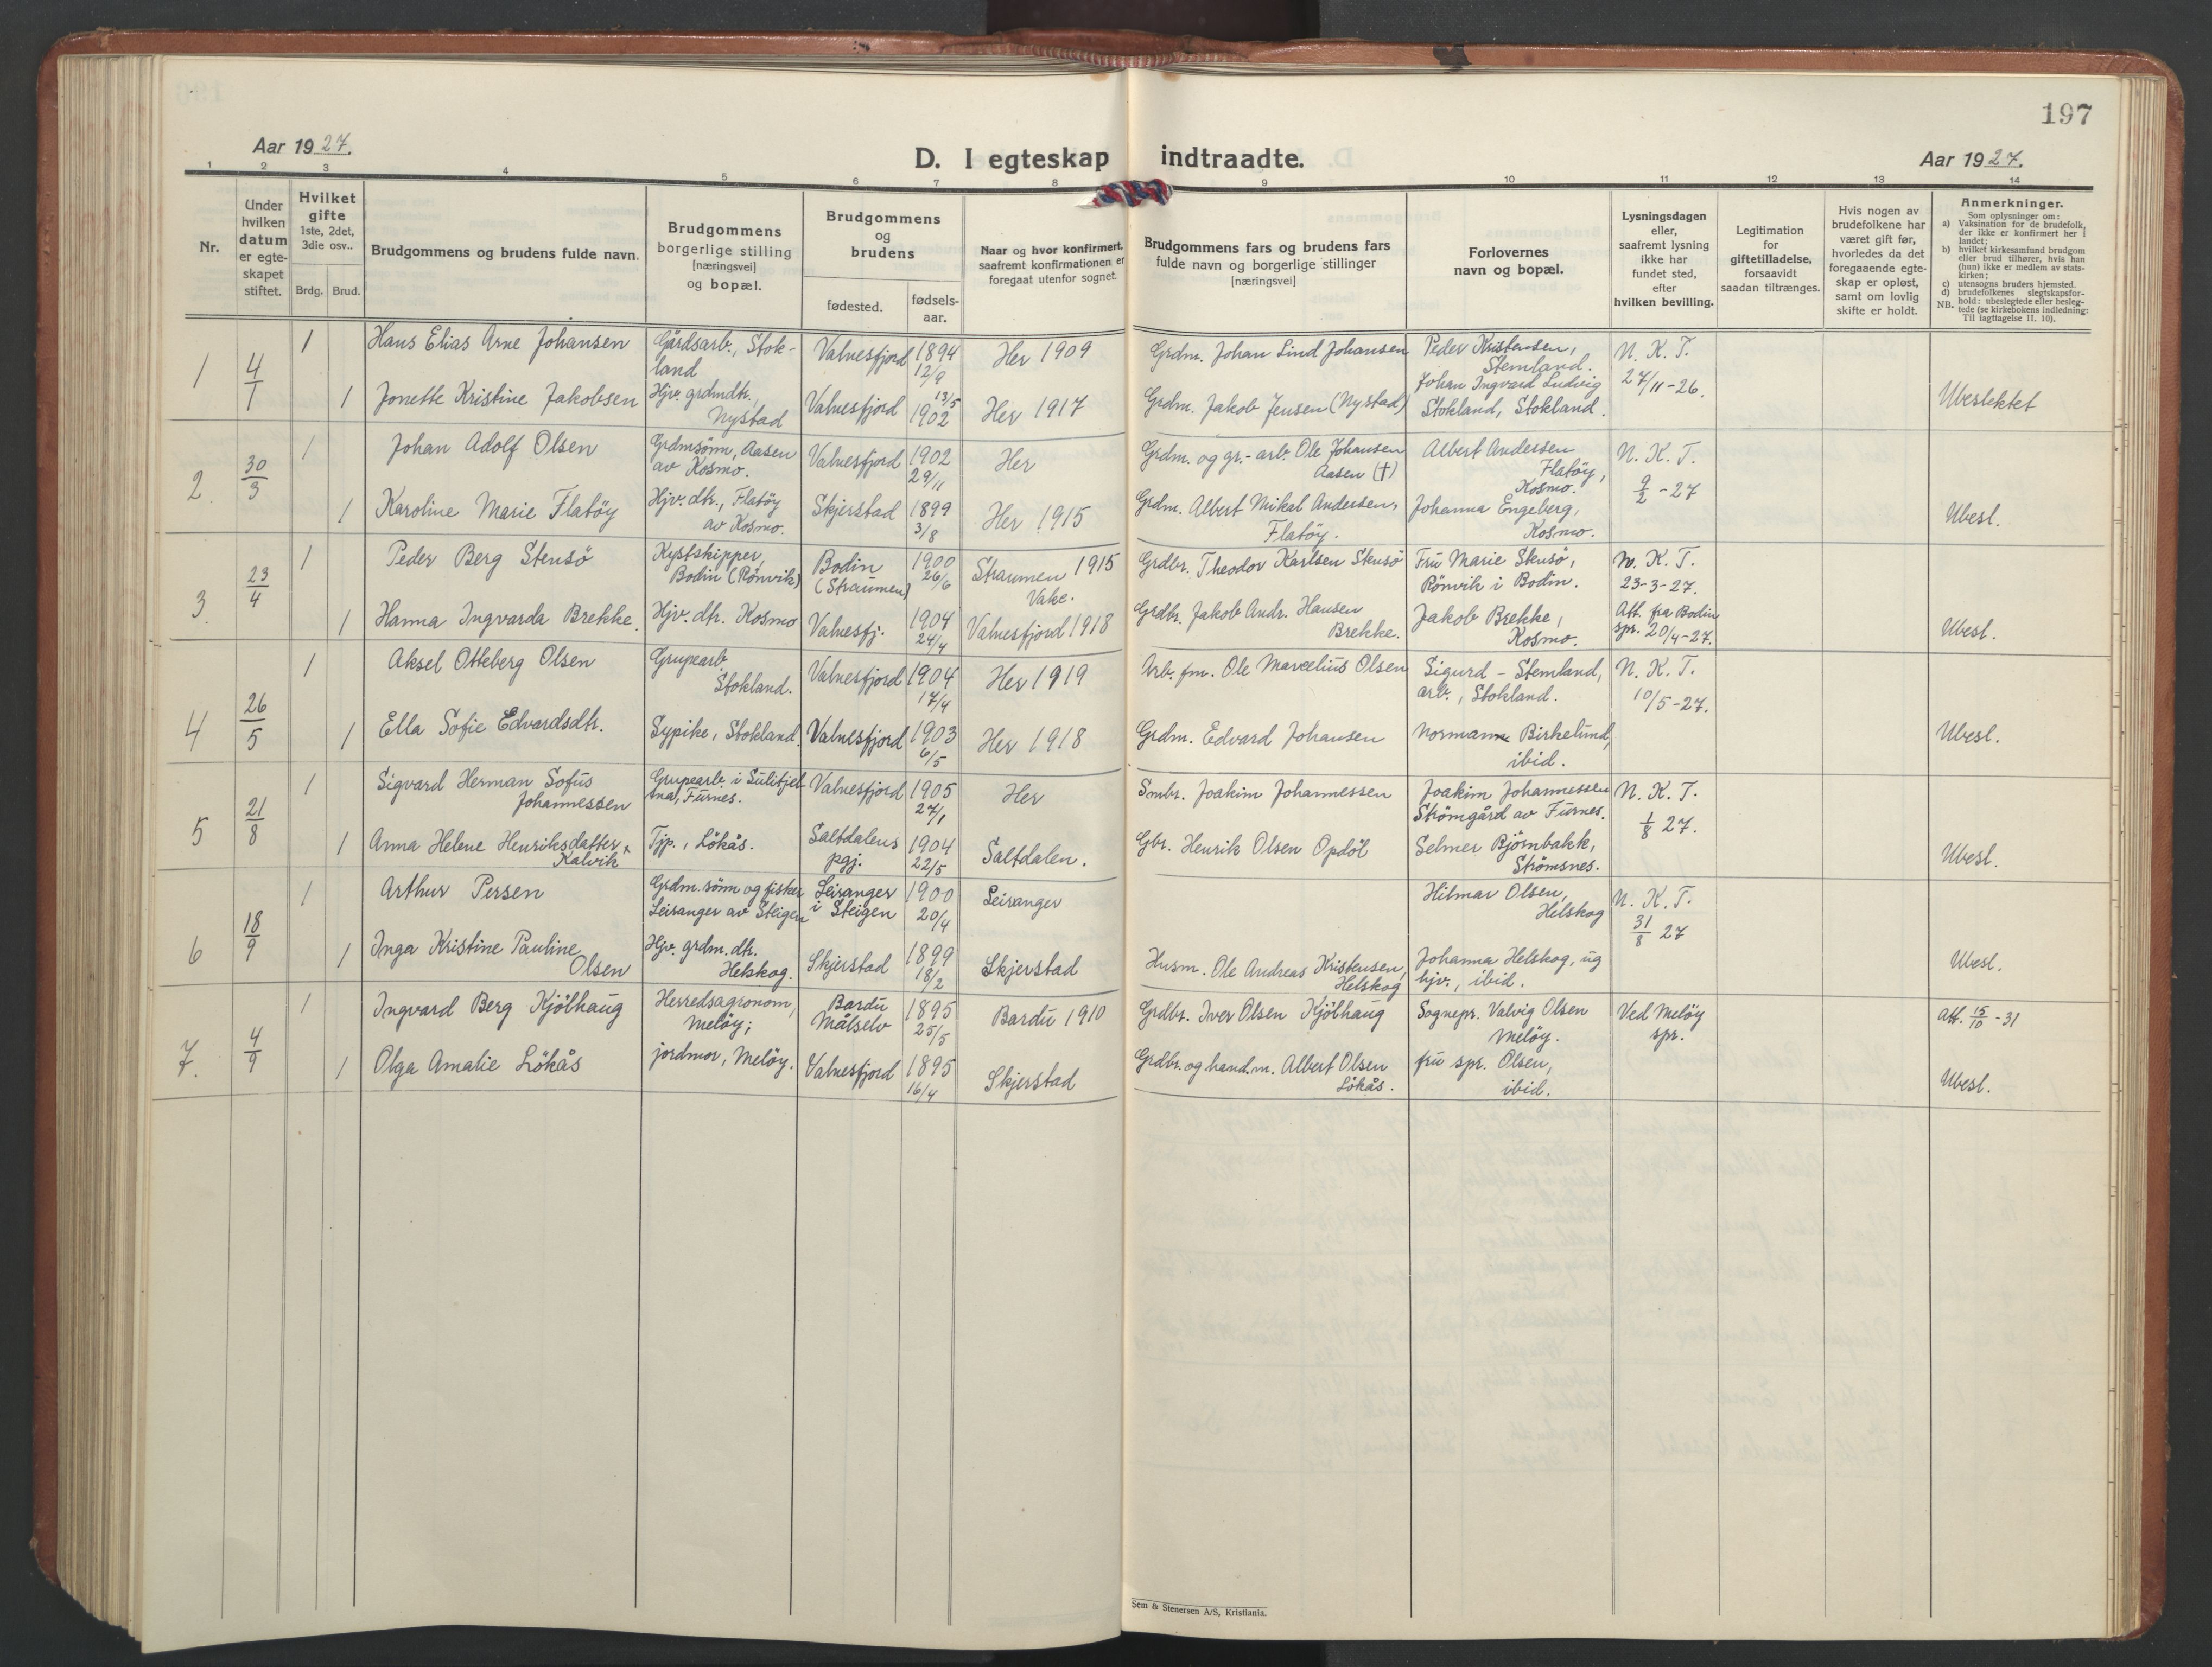 197
Aar 1927.
D. I egteskap indtraadte.
Aar 1927.
1 2 3 4 5 6 7 8 9 10 11 12 13 14
Nr.
Under
hvilken
datum
er egte-
skapet
stiftet.
Hvilket
gifte
1ste, 2det,
3die osv..
Brdg. Brud.
Brudgommens og brudens fulde navn.
Brudgommens
borgerlige stilling
[næringsvei]
og bopæl.
Brudgommens
og
brudens
fødested.
fødsels-
aar.
Naar og hvor konfirmert,
saafremt konfirmationen er
foregaat utenfor sognet.
Brudgommens fars og brudens fars
fulde navn og borgerlige stillinger
[næringsvei]
Forlovernes
navn og bopæl.
Lysningsdagen
eller,
saafremt lysning
ikke har
fundet sted,
efter
hvilken bevilling.
Legitimation
for
giftetilladelse,
forsaavidt
saadan tiltrænges.
Hvis nogen av
brudefolkene har
været gift før,
hvorledes da det
foregaaende egte-
skap er opløst,
samt om lovlig
skifte er holdt.
Anmerkninger.
Som oplysninger om:
a) Vaksination for de brudefolk,
der ikke er konfirmert her i
landet;
b) hvilket kirkesamfund brudgom
eller brud tilhører, hvis han
(hun) ikke er medlem av stats-
kirken;
c) utensogns bruders hjemsted.
d) brudefolkenes slegtskapsfor-
NB. hold: ubeslegtede eller besleg-
tede (se kirkebokens indledning:
Til iagttagelse II. 10).
1
4/1
1
Hans Elias Arne Johansen
Gårdsarb., Stok-
land
Valnesfjord
1894
12/9
Her 1909
Grdm. Johan Lind Johansen
Peder Kristensen,
Stemland.
N. K. T.
27/11-26.
1
Jonette Kristine Jakobsen
Hjv. grdmdtr.,
Nystad
Valnesfjord
13/5
1902
Her 1917
Grdm. Jakob Jensen (Nystad)
Johan Ingvard Ludvig
Stokland, Stokland.
Ubeslektet
2.
30/3
1
Johan Adolf Olsen
Grdmsönn, Aasen
av Kosmo.
Valnesfjord
1902
29/11
Her
Grdm. og gr.-arb. Ole Johansen
Aasen (†)
Albert Andersen
Flatöy,
Kosmo.
N. K. T.
9/2-27
1
Karoline Marie Flatöy
Hjv. dtr., Flatöy
av Kosmo.
Skjerstad
1899
3/8
Her 1915
Grdm. Albert Mikal Andersen,
Flatöy.
Johanna Engeberg,
Kosmo.
Ubesl.
3.
23/4
1
Peder Berg Stensö
Kystskipper,
Bodin (Rönvik)
Bodin
(Straumen)
1900
26/6
Straumen 1915
Grdbr. Theodor Karlsen Skusö
Fru Marie Skusö,
Rönvik i Bodin.
N. K. T.
23-3-27.
1
Hanna Ingvarda Brekke.
Hjv. dtr. Kosmo
Valnesfj.
1904
24/4
Valnesfjord 1918
Grdbr. Jakob Andr. Hansen
Brekke.
Jakob Brekke,
Kosmo.
Att. fra Bodin
spr. 20/4-27.
Ubesl.
4
26/5
1
Aksel Otteberg Olsen
Grupearb.
Stokland.
Valnesfjord
1904
17/4
Her 1919
Arb. fm. Ole Marcelius Olsen
Sigurd - Stemland,
arb., Stokland.
N. K. T.
10/5-27.
1
Ella Sofie Edvardsdtr.
Sypike, Stokland.
Valnesfjord
1903
6/5
Her 1918
Grdm. Edvard Johansen
Normann Birkelund,
ibid.
Ubesl.
5
21/8
1
Sigvard Herman Sofus
Johannessen
Grupearb. i Sulitjel-
ma, Furnes.
Valnesfjord
1905
27/1
Her
Smbr. Joakim Johannessen
Joakim Johannessen
Strömgård av Furnes.
N. K. T.
1/8 27.
1
Anna Helene Henriksdatter
Kalvik
Tjp., Lökås.
Saltdalens
pgj.
1904
22/5
Saltdalen.
Gbr. Henrik Olsen Opdöl
Selmer Björnbakk,
Strömsnes.
Ubesl.
6
18/9
1
Arthur Persen
Grdm. sönn og fisker
Leiranger av Steigen
Leiranger
i Steigen
1900
20/4
Leiranger
Hilmar Olsen,
Helskog
N. K. T.
31/8 27
1
Inga Kristine Pauline
Olsen
Hjv. grdm. dtr.
Helskog.
Skjerstad
1899
18/2
Skjerstad
Husm. Ole Andreas Kristensen,
Helskog
Johanna Helskog, ug
hjv., ibid.
Ubesl.
7.
4/9
1
Ingvard Berg Kjölhaug
Herredsagronom,
Melöy;
Bardu
Målselv
1895
25/5
Bardu 1910
Grdbr. Iver Olsen Kjölhaug
Sognepr. Valvig Olsen
Melöy.
Ved Melöy
spr.
Att. 15/10-31
1
Olga Amalie Lökås
jordmor, Melöy.
Valnesfjord
1895
16/4
Skjerstad
Grdbr. og hand.m. Albert Olsen
Lökås.
fru spr. Olsen,
ibid.
Ubesl.
Sem & Stenersen A/S, Kristiania.